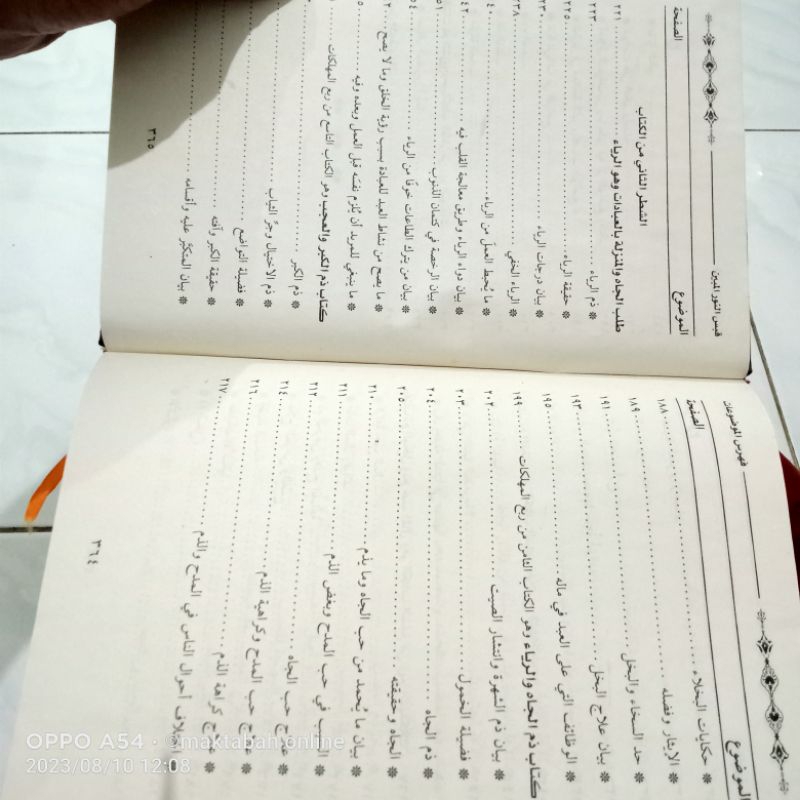 فهرس الموضوعات
الموضوع الصفحة
* حكايات البخلاء ١٨٨
* الإيثار وفضله ١٨٩
* حد السخاء والبخل ١٩١
* بيان علاج البخل ١٩٣
* الوظائف التي على العبد في ماله ١٩٥
كتاب ذم الجاه والرياء وهو الكتاب الثامن من ربع المهلكات ١٩٩
* بيان ذم الشهرة وانتشار الصيت ٢٠٢
* فضيلة الخمول ٢٠٣
* ذم الجاه ٢٠٤
* الجاه وحقيقته ٢٠٥
* بيان ما يُحمد من حب الجاه وما يذم ٢١٠
* السبب في حب المدح وبغض الذم ٢١١
* علاج حب الجاه ٢١٢
* علاج حب المدح وكراهية الذم ٢١٤
* علاج كراهة الذم ٢١٦
* اختلاف أحوال الناس في المدح والذم ٢١٧
٣٦٤
قبس النور المبين
الموضوع الصفحة
الشطر الثاني من الكتاب
طلب الجاه والمنزلة بالعبادات وهو الرياء ٢٢١
* ذم الرياء ٢٢٣
* حقيقة الرياء ٢٢٥
* بيان درجات الرياء ٢٣٠
* الرياء الخفي ٢٣٨
* ما يُحبط العمل من الرياء ٤٠
* بيان دواء الرياء وطريق معالجة القلب فيه ٤٢
* بيان الرخصة في كتمان الذنوب ٥١
* بيان من يترك الطاعات خوفًا من الرياء ٥٤
* ما يصح من نشاط العبد للعبادة بسبب رؤية الخلق وما لا يصح
* ما ينبغي للمريد أن يُلزم نفسَه قبل العمل وبعده وفيه
كتاب ذم الكبر والعجب وهو الكتاب التاسع من ربع المهلكات
* ذم الكبر
* ذم الاختيال وجرّ الثياب
* فضيلة التواضع
* حقيقة الكبر وآفته
* بيان المتكبَّر عليه وأقسامه
٣٦٥
OPPO A54 · @maktabah.online
2023/08/10 12:08